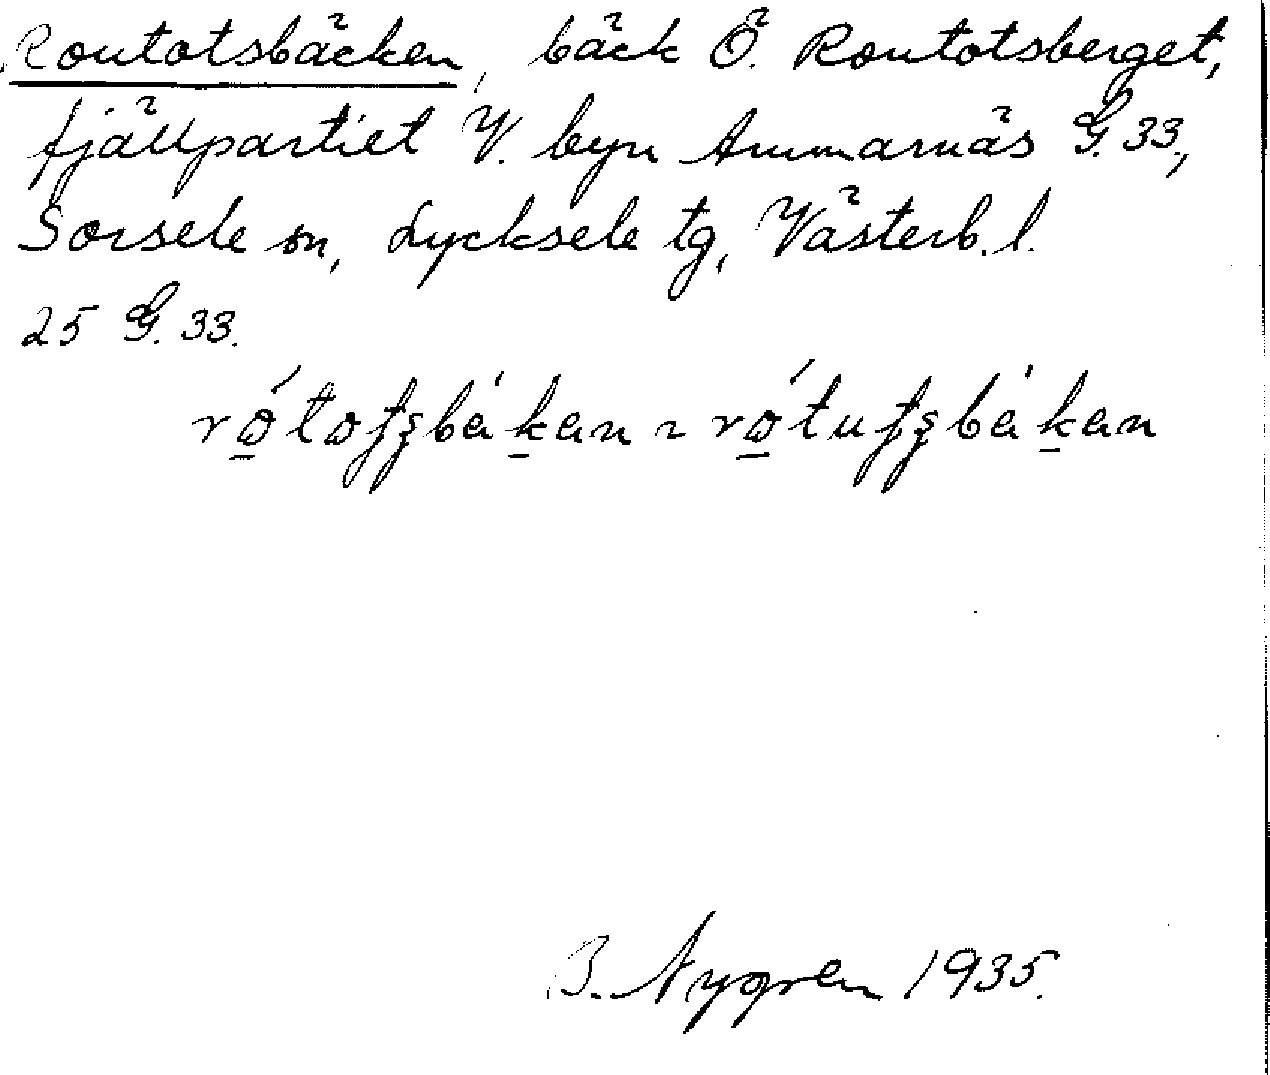 Routotsbäcken, bäck Ö. Routotsberget,
fjällpartiet V. byn Ammarnäs G. 33,
Sorsele sn, Lycksele tg, Västerb. l.
25 G. 33.
B. Nygren 1935.